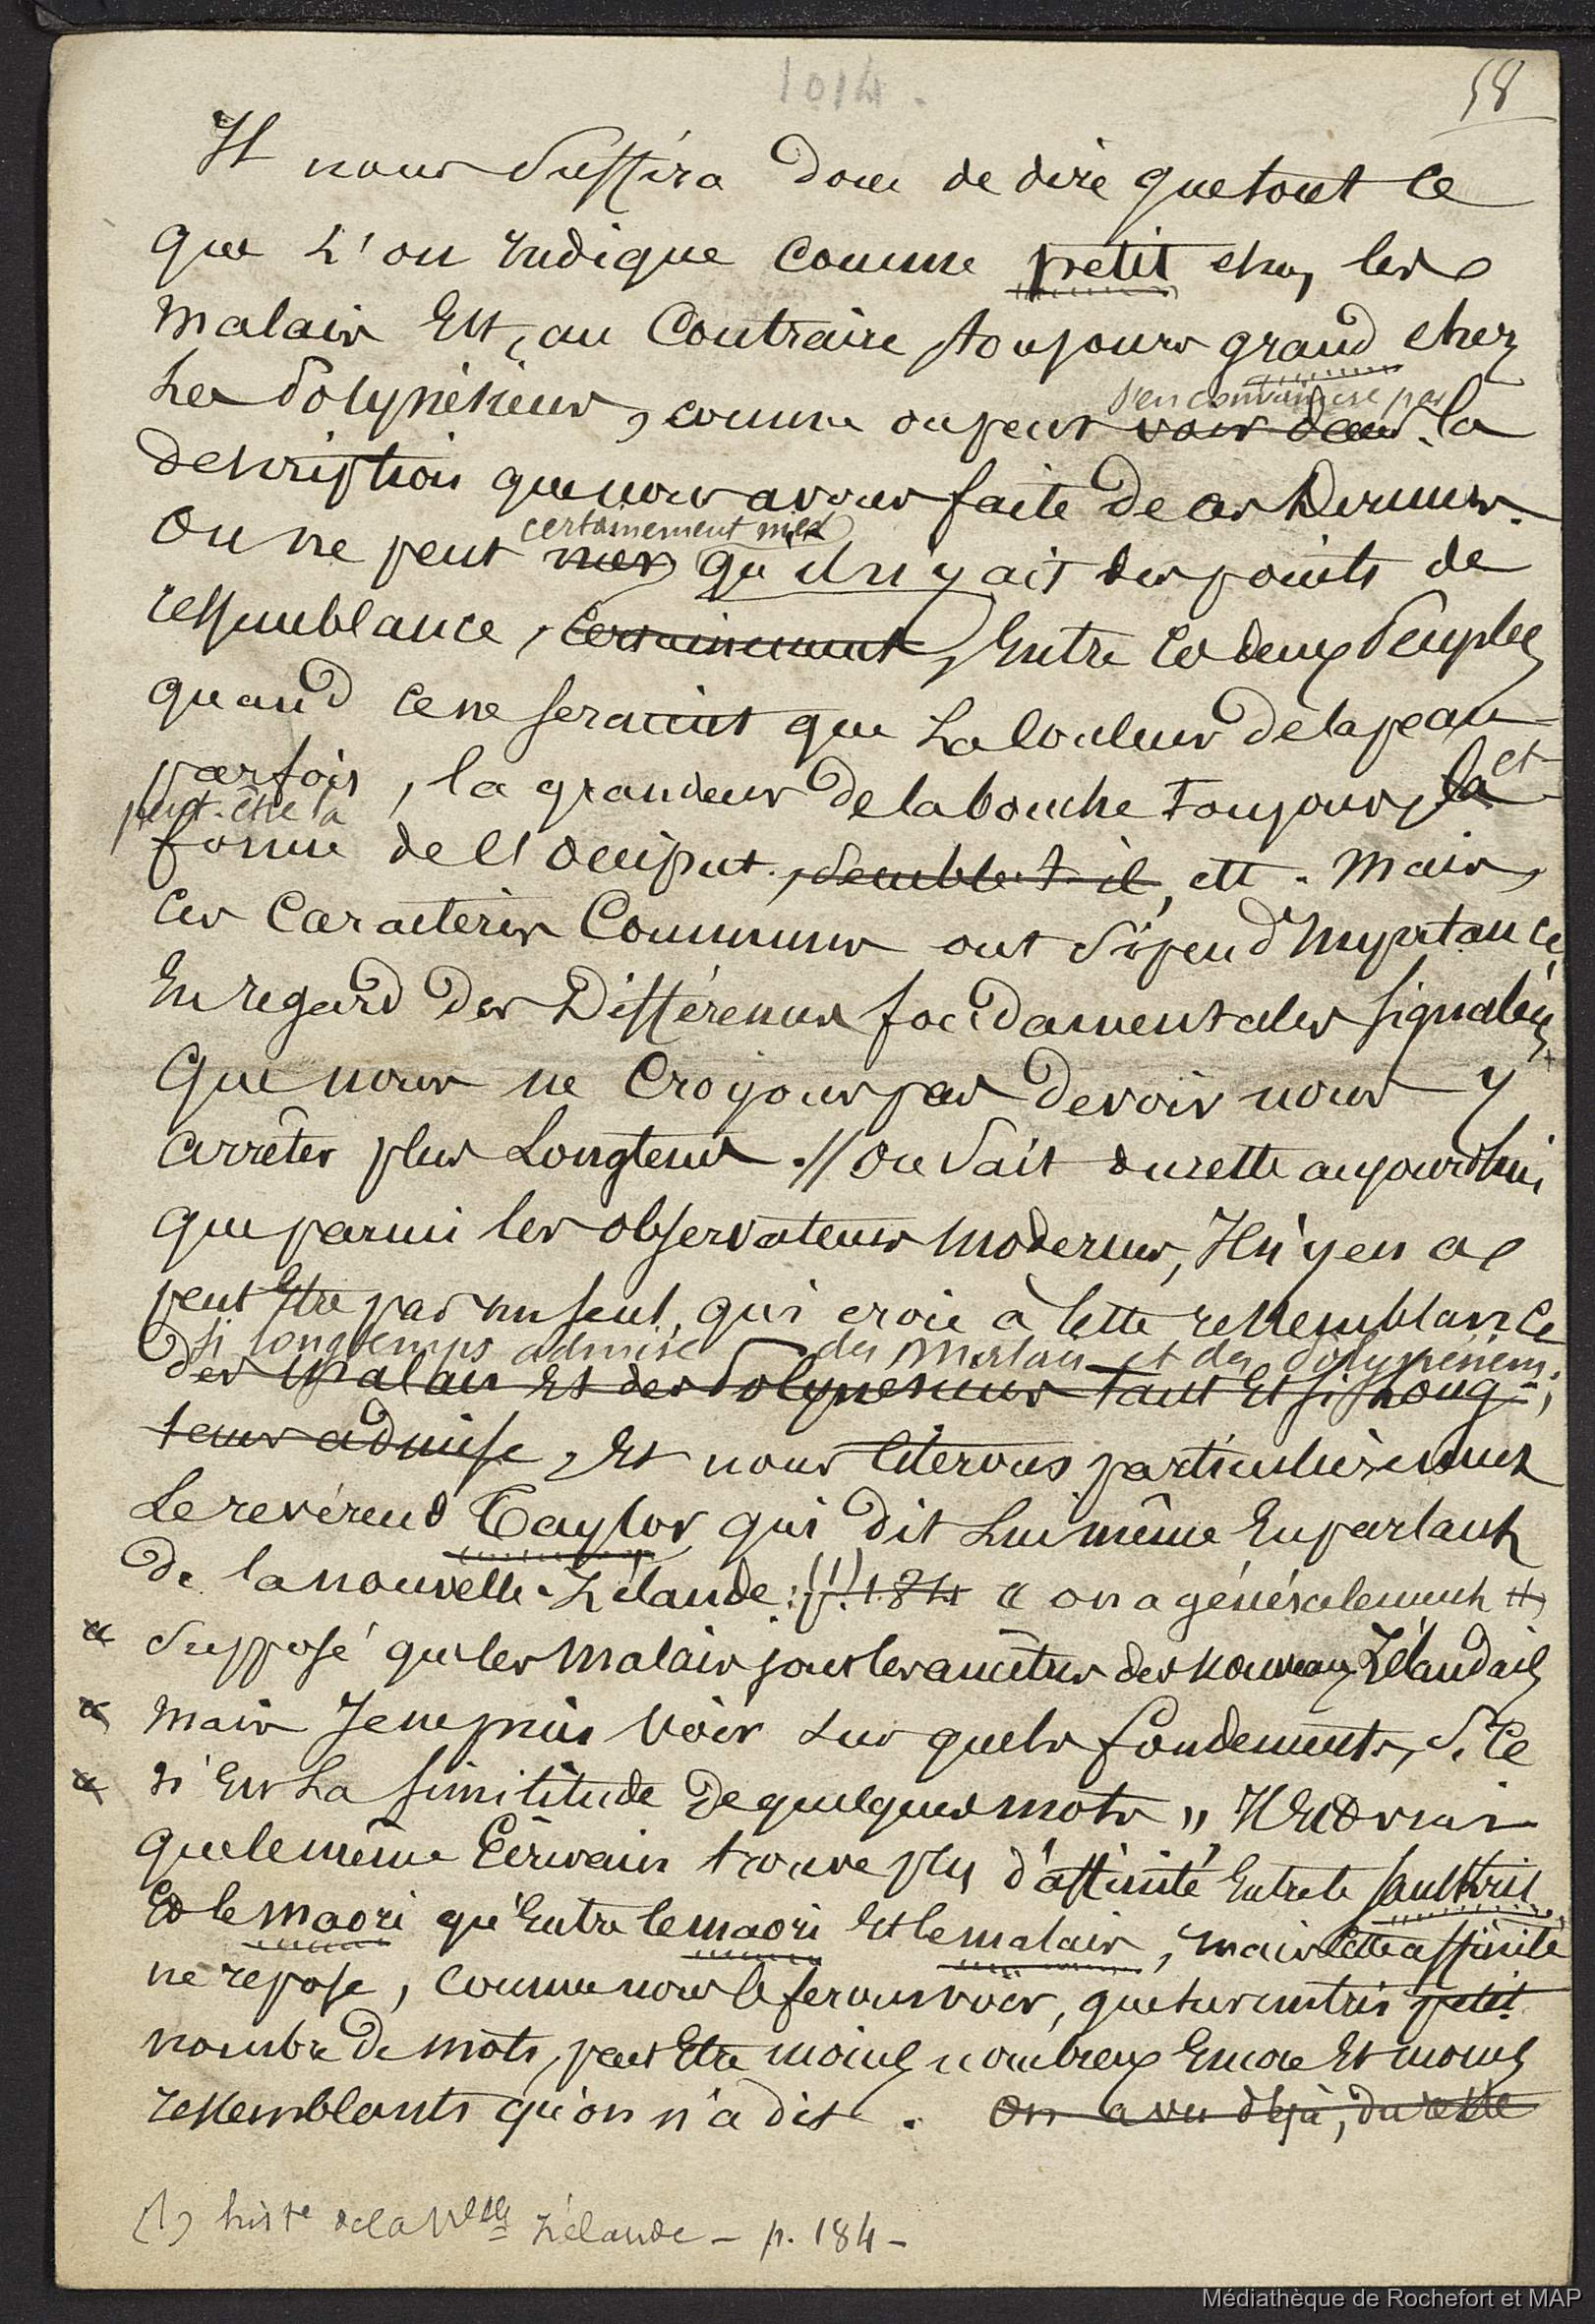 1014.
58
Il nous suffira donc de dire que tout ce
que l'on indique comme petit chez les
malais est, au contraire, toujours grand chez
s'en convaincre par
les Polynésiens, comme on peut voir dans la
description que nous avons faite de ces derniers.
certainement nier
On ne peut nier qu'il n'y ait des points de
ressemblance, certainement, entre ces deux peuples
quand ce ne seraient que la couleur de la peau
parfois, la grandeur de la bouche toujours, la et
peut-être la
forme de l'occiput, semble-t-il, etc. Mais,
ces caractères communs ont si peu d'importance,
en regard des différences fondamentales signalées,
que nous ne croyons pas devoir nous y
arrêter plus longtems. // On sait du reste aujourd'hui
que parmi les observateurs modernes, il n'y en a
peut être pas un seul, qui croie à cette ressemblance
si longtemps admise des Malais et des Polynésiens;
des Malais et des Polynésiens tant et si long-
tems admise, et nous citerons particulièrement
le révérend Taylor qui dit lui même en parlant
de la nouvelle-Zélande: (1) p. 184 « on a généralement
« supposé que les malais sont les ancêtres des nouveaux Zélandais
« mais je ne puis voir sur quels fondements, si ce
« n'est la similitude de quelques mots » Il est vrai
que le même écrivain trouve plus d'affinité entre le sanskrit
et le maori qu'entre le maori et le malais, mais cette affinité
ne repose, comme nous le ferons voir, que sur un très petit
nombre de mots, peut être moins nombreux encore et moins
ressemblants qu'on n'a dit. On a vu déjà, du reste
(1) histre de la Nelle Zélande – p. 184 –
Médiathèque de Rochefort et MAP